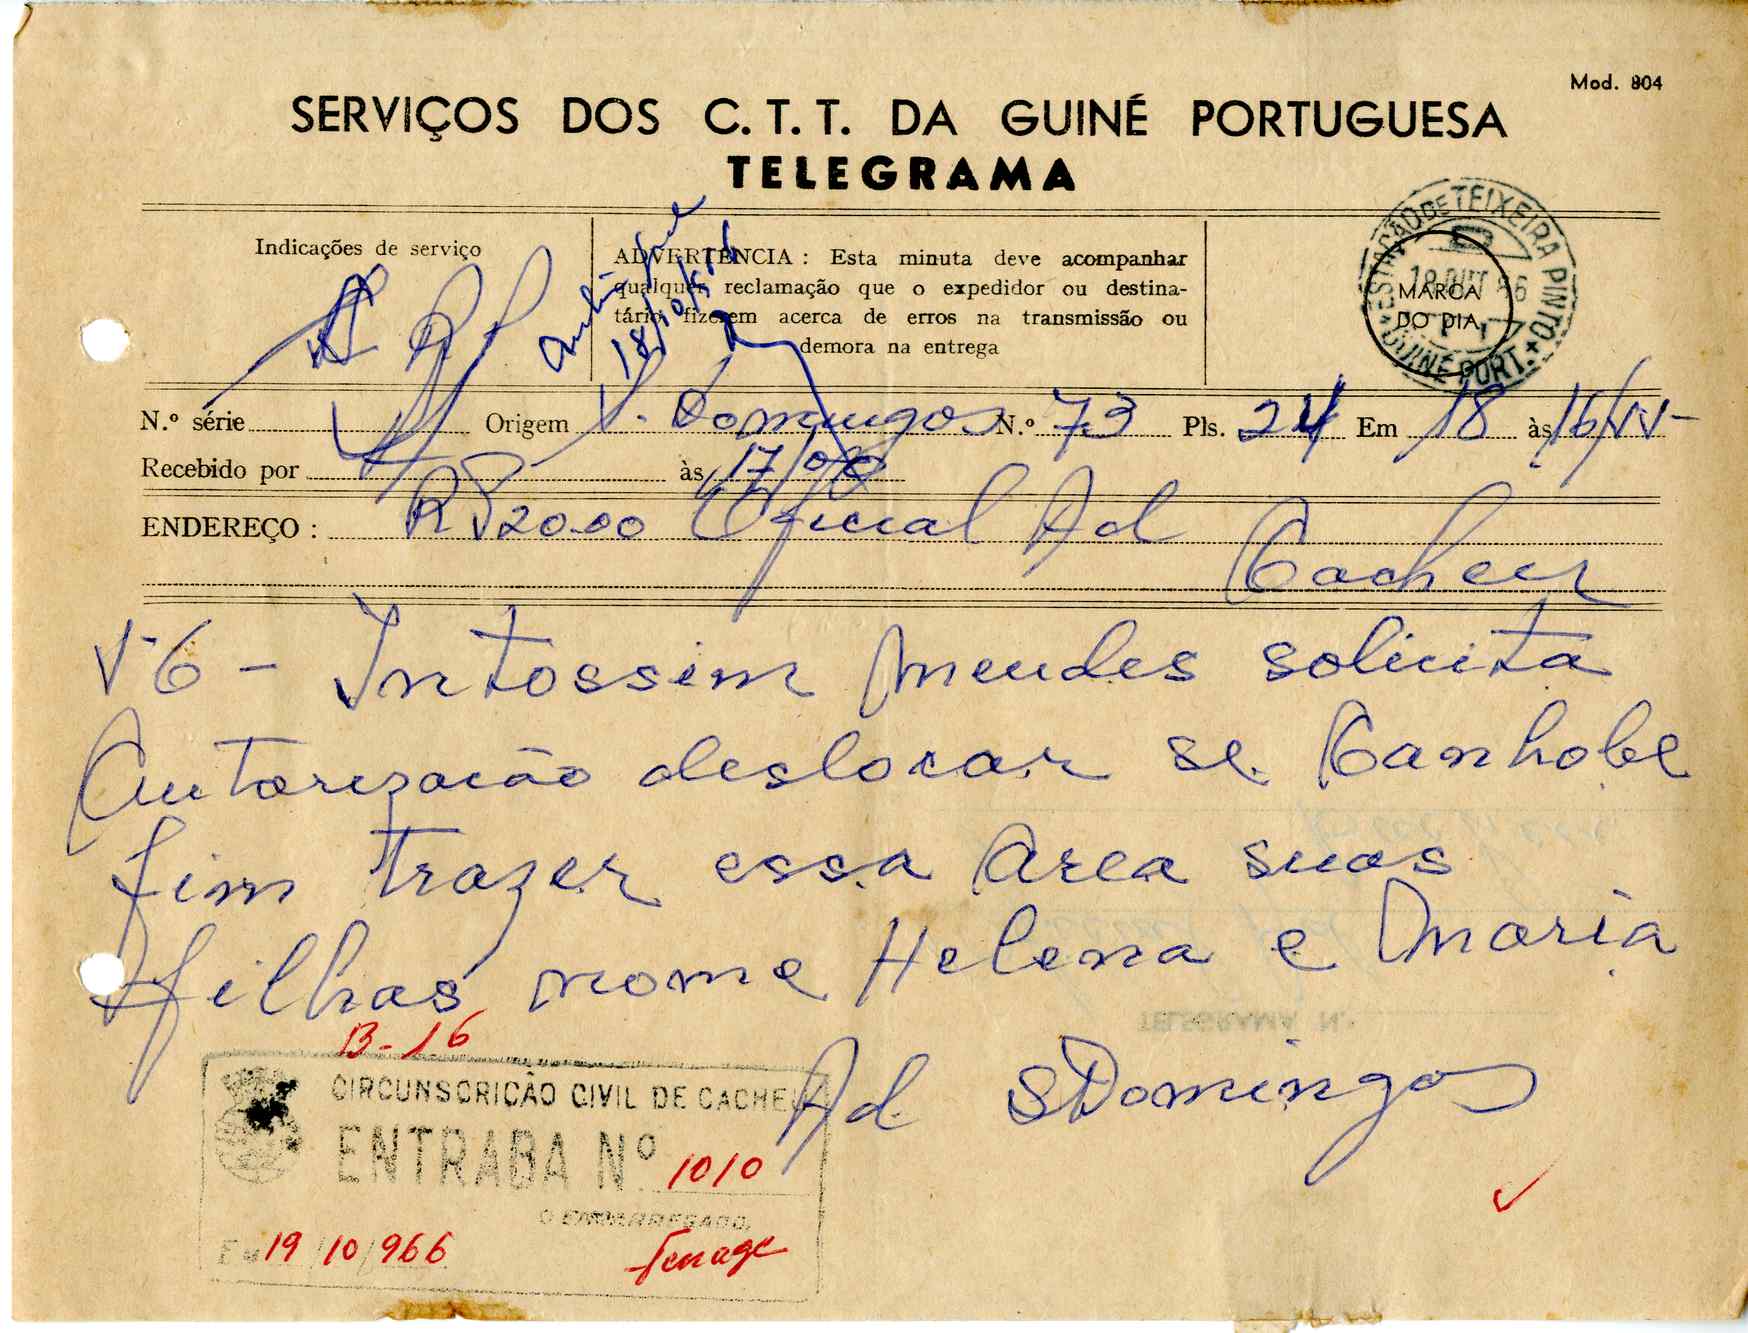 Mod. 804
SERVIÇOS DOS C. T. T. DA GUINÉ PORTUGUESA
TELEGRAMA
Indicações de serviço
ADVERTÊNCIA : Esta minuta deve acompanhar
qualquer reclamação que o expedidor ou destina-
tário fizerem acerca de erros na transmissão ou
demora na entrega
18/10/966
ESTAÇÃO DE TEIXEIRA PINTO
18 OUT 66
GUINÉ PORT.
MARCA
DO DIA
N.º série Origem S. Domingos N.º 73 Pls. 24 Em 18 às 16/
Recebido por às 17/00
ENDEREÇO : RP2000 Oficial Ad
Cacheu
V-6 - Intossim Mendes solicita
Autorização deslocar se Canhobe
fim trazer essa Area suas
filhas nome Helena e Maria
Ad SDomingos
TELEGRAMA N.º
B-16
CIRCUNSCRIÇÃO CIVIL DE CACHEU
ENTRADA Nº 1010
O ENCARREGADO,
Em 19/10/966